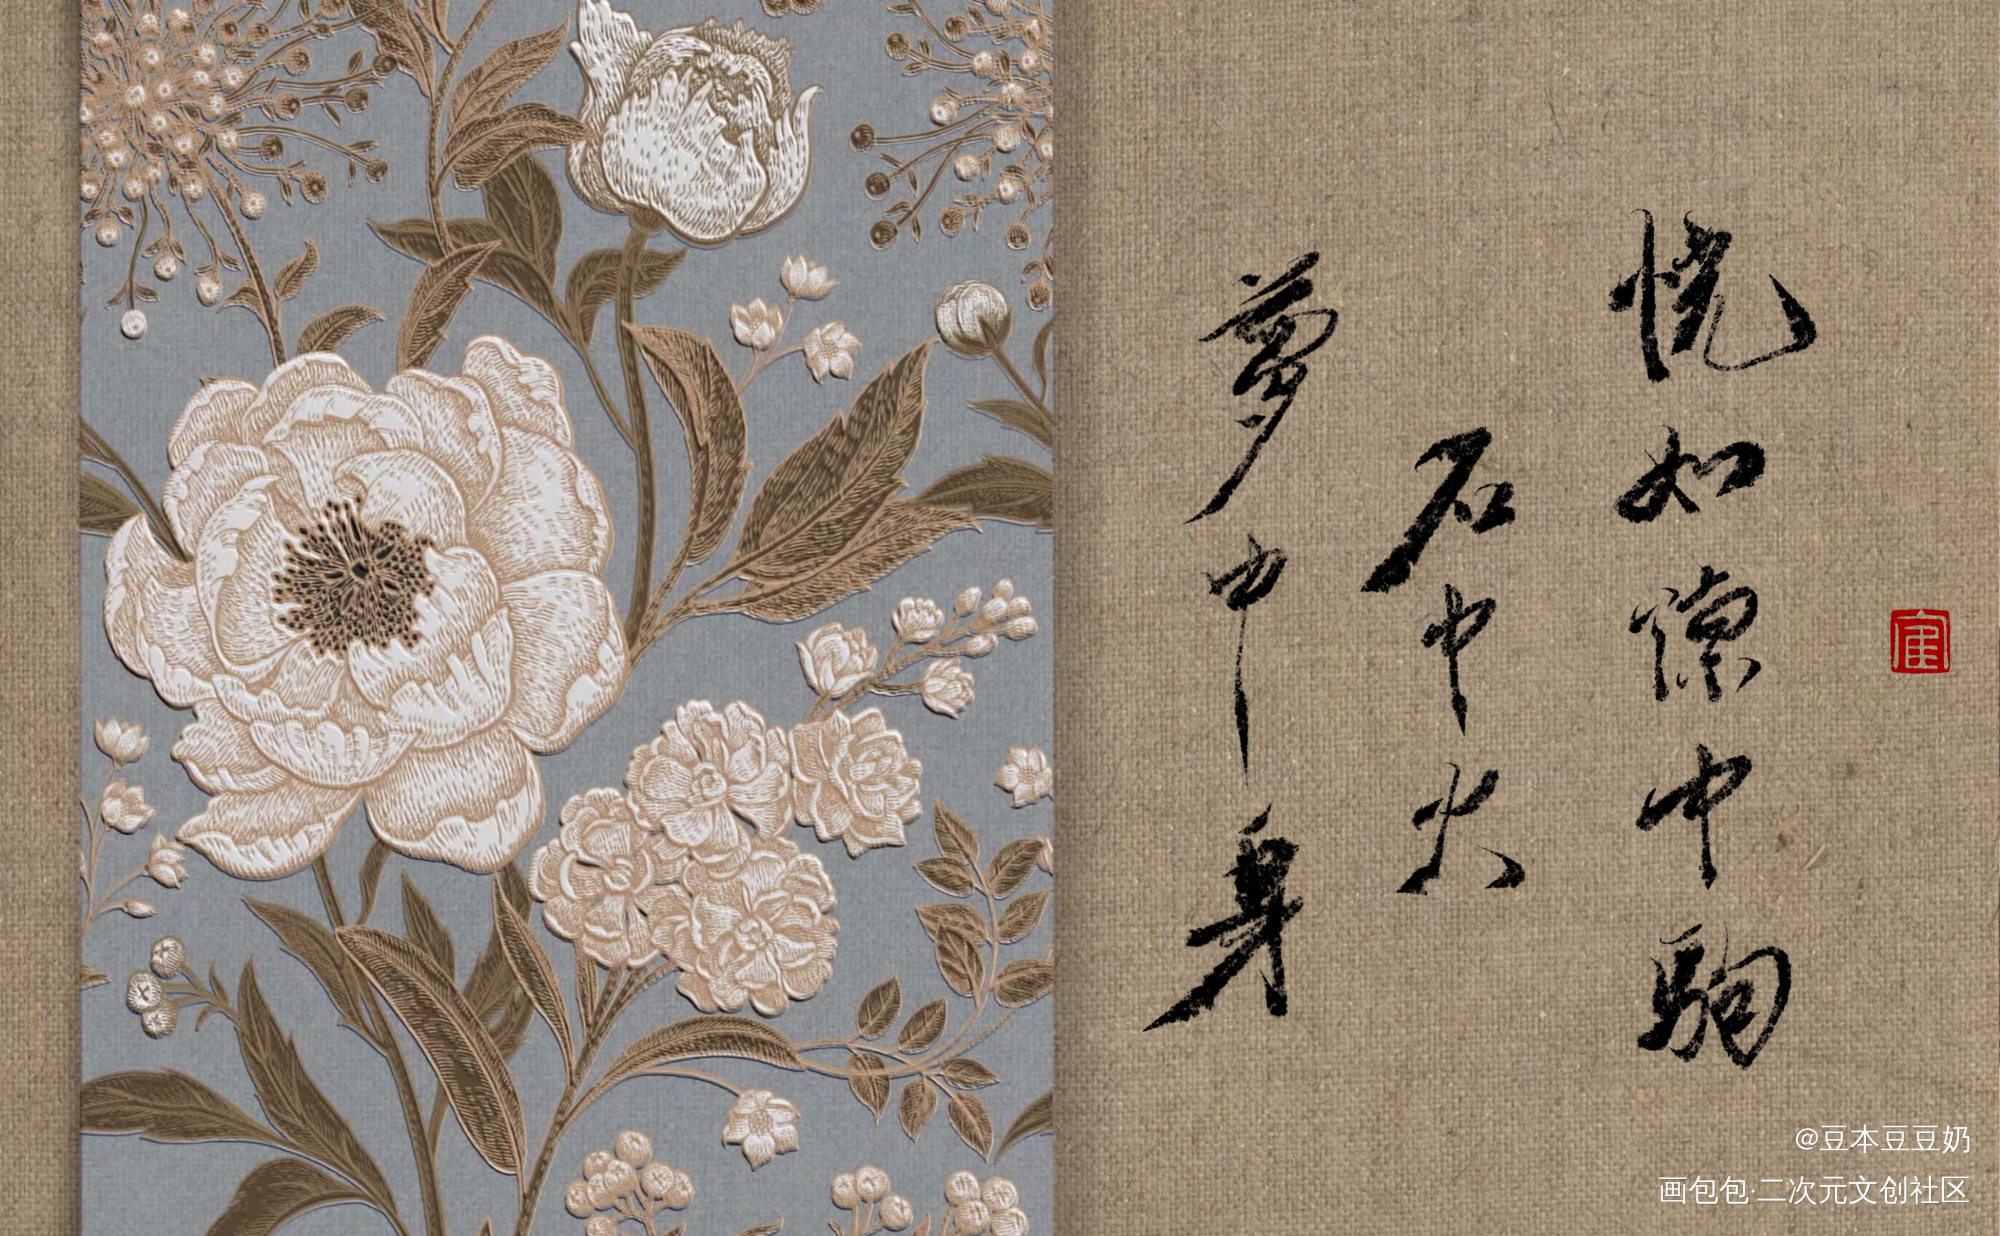 恍如隙中駒
石中火
夢中身
@豆本豆豆奶
画包包·二次元文创社区